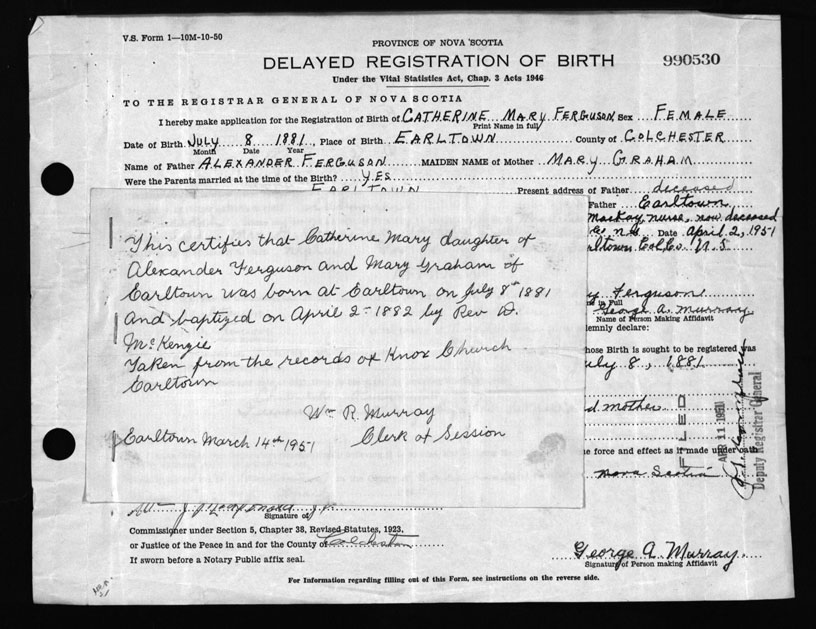 V.S. Form 1—10M-10-50
PROVINCE OF NOVA SCOTIA
DELAYED REGISTRATION OF BIRTH
990530
Under the Vital Statistics Act, Chap. 3 Acts 1946
TO THE REGISTRAR GENERAL OF NOVA SCOTIA
I hereby make application for the Registration of Birth of CATHERINE MARY FERGUSON, Sex FEMALE
Print Name in full
Date of Birth JULY 8 1881 Place of Birth EARLTOWN County of COLCHESTER
Month Date Year
Name of Father ALEXANDER FERGUSON MAIDEN NAME of Mother MARY GRAHAM
Were the Parents married at the time of the Birth? YES
EARLTOWN Present address of Father deceased
Father Earltown
MacKay, nurse, now deceased
N.S. Date April 2, 1951
Earltown Col Co. N.S
This certifies that Catherine Mary daughter of
Alexander Ferguson and Mary Graham of
Earltown was born at Earltown on July 8th 1881
And baptized on April 2nd 1882 by Rev D.
McKenzie
Taken from the records of Knox Church
Earltown
Wm R. Murray
Earltown March 14th 1951 Clerk of Session
Ferguson
in Full
George A. Murray
Name of Person Making Affidavit
lemnly declare:
hose Birth is sought to be registered was
July 8, 1881
d mother
FILED
APR 11 1951
Deputy Registrar General
e force and effect as if made under oath
Nova Scotia
Signature of
Commissioner under Section 5, Chapter 38, Revised Statutes, 1923,
or Justice of the Peace in and for the County of Colchester
If sworn before a Notary Public affix seal.
George A. Murray
Signature of Person making Affidavit
For Information regarding filling out of this Form, see instructions on the reverse side.